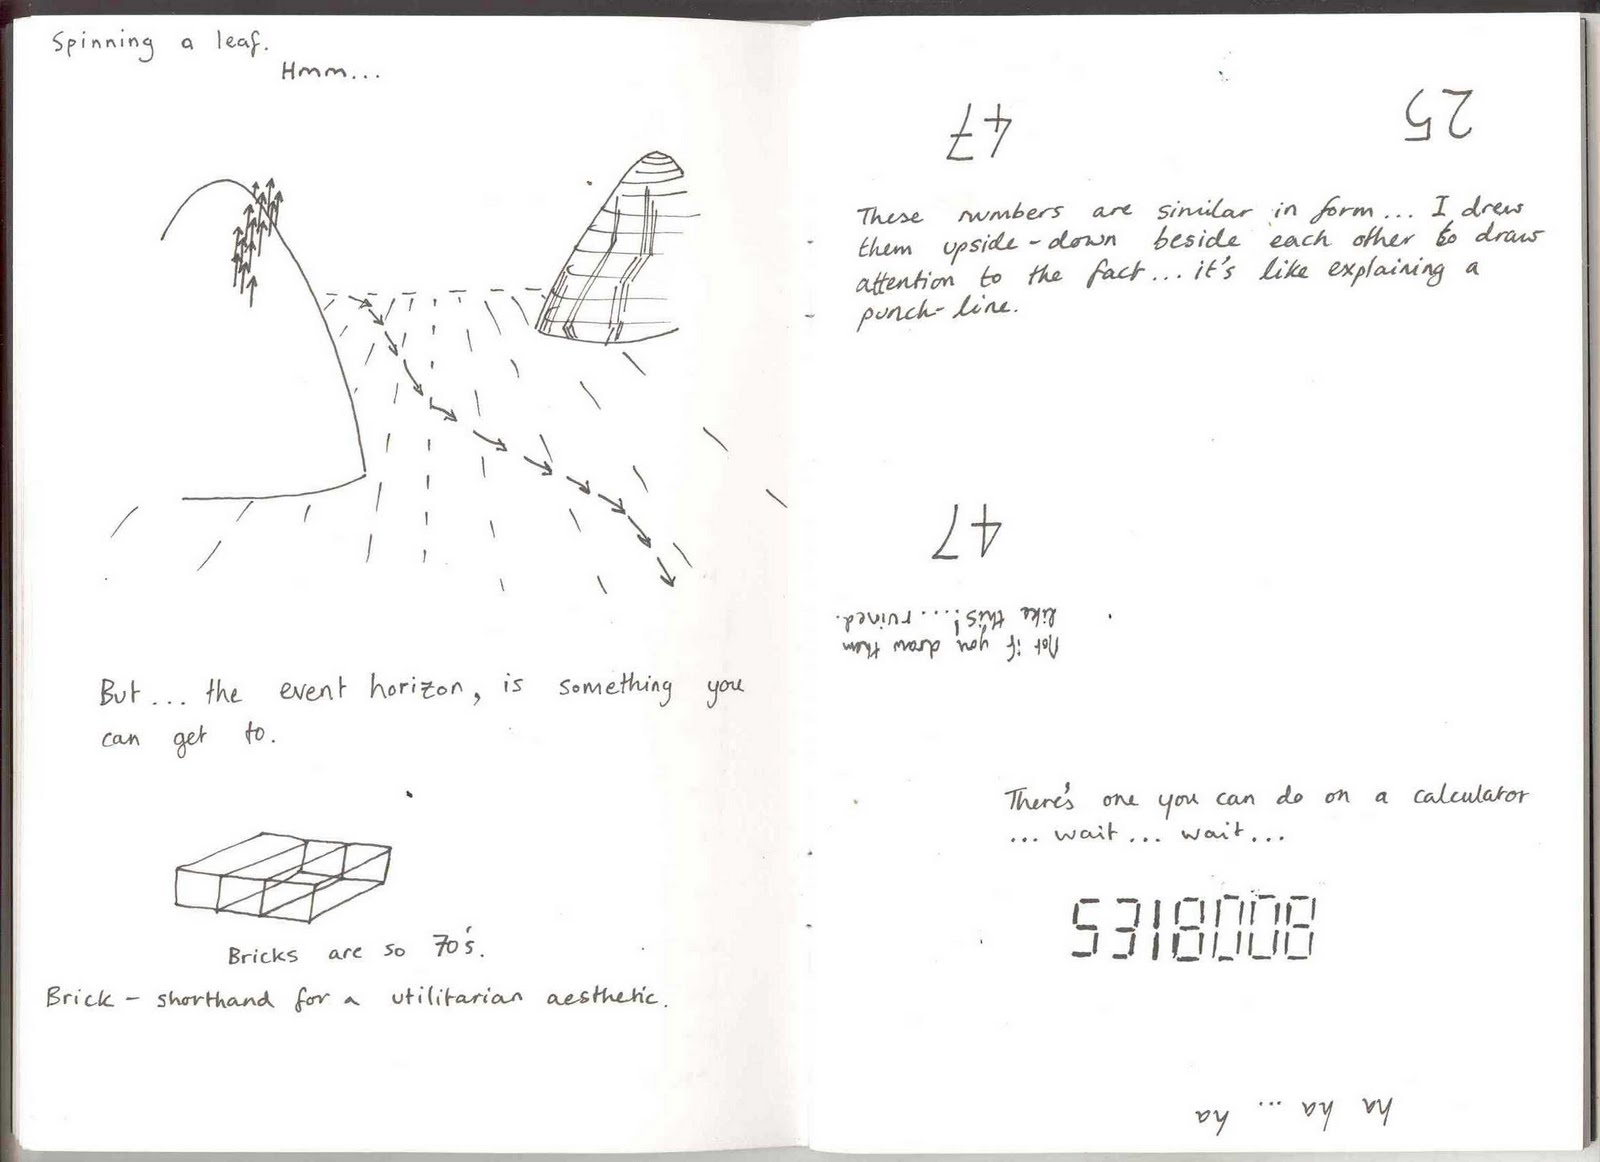 Spinning a leaf.
Hmm...
But... the event horizon, is something you
can get to.
Bricks are so 70's.
Brick - shorthand for a utilitarian aesthetic.
47
25
These numbers are similar in form... I drew
them upside-down beside each other to draw
attention to the fact... it's like explaining a
punch-line.
47
Not if you draw them
like this!.... ruined.
There's one you can do on a calculator
... wait... wait...
5318008
ha ha ... ha